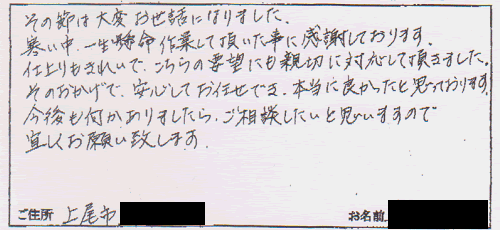 その節は大変お世話になりました。
寒い中、一生懸命作業して頂いた事に感謝しております。
仕上りもきれいで、こちらの要望にも親切に対応して頂きました。
そのおかげで、安心してお任せでき、本当に良かったと思っております。
今後も何かありましたら、ご相談したいと思いますので
宜しくお願い致します。
ご住所 上尾市 お名前